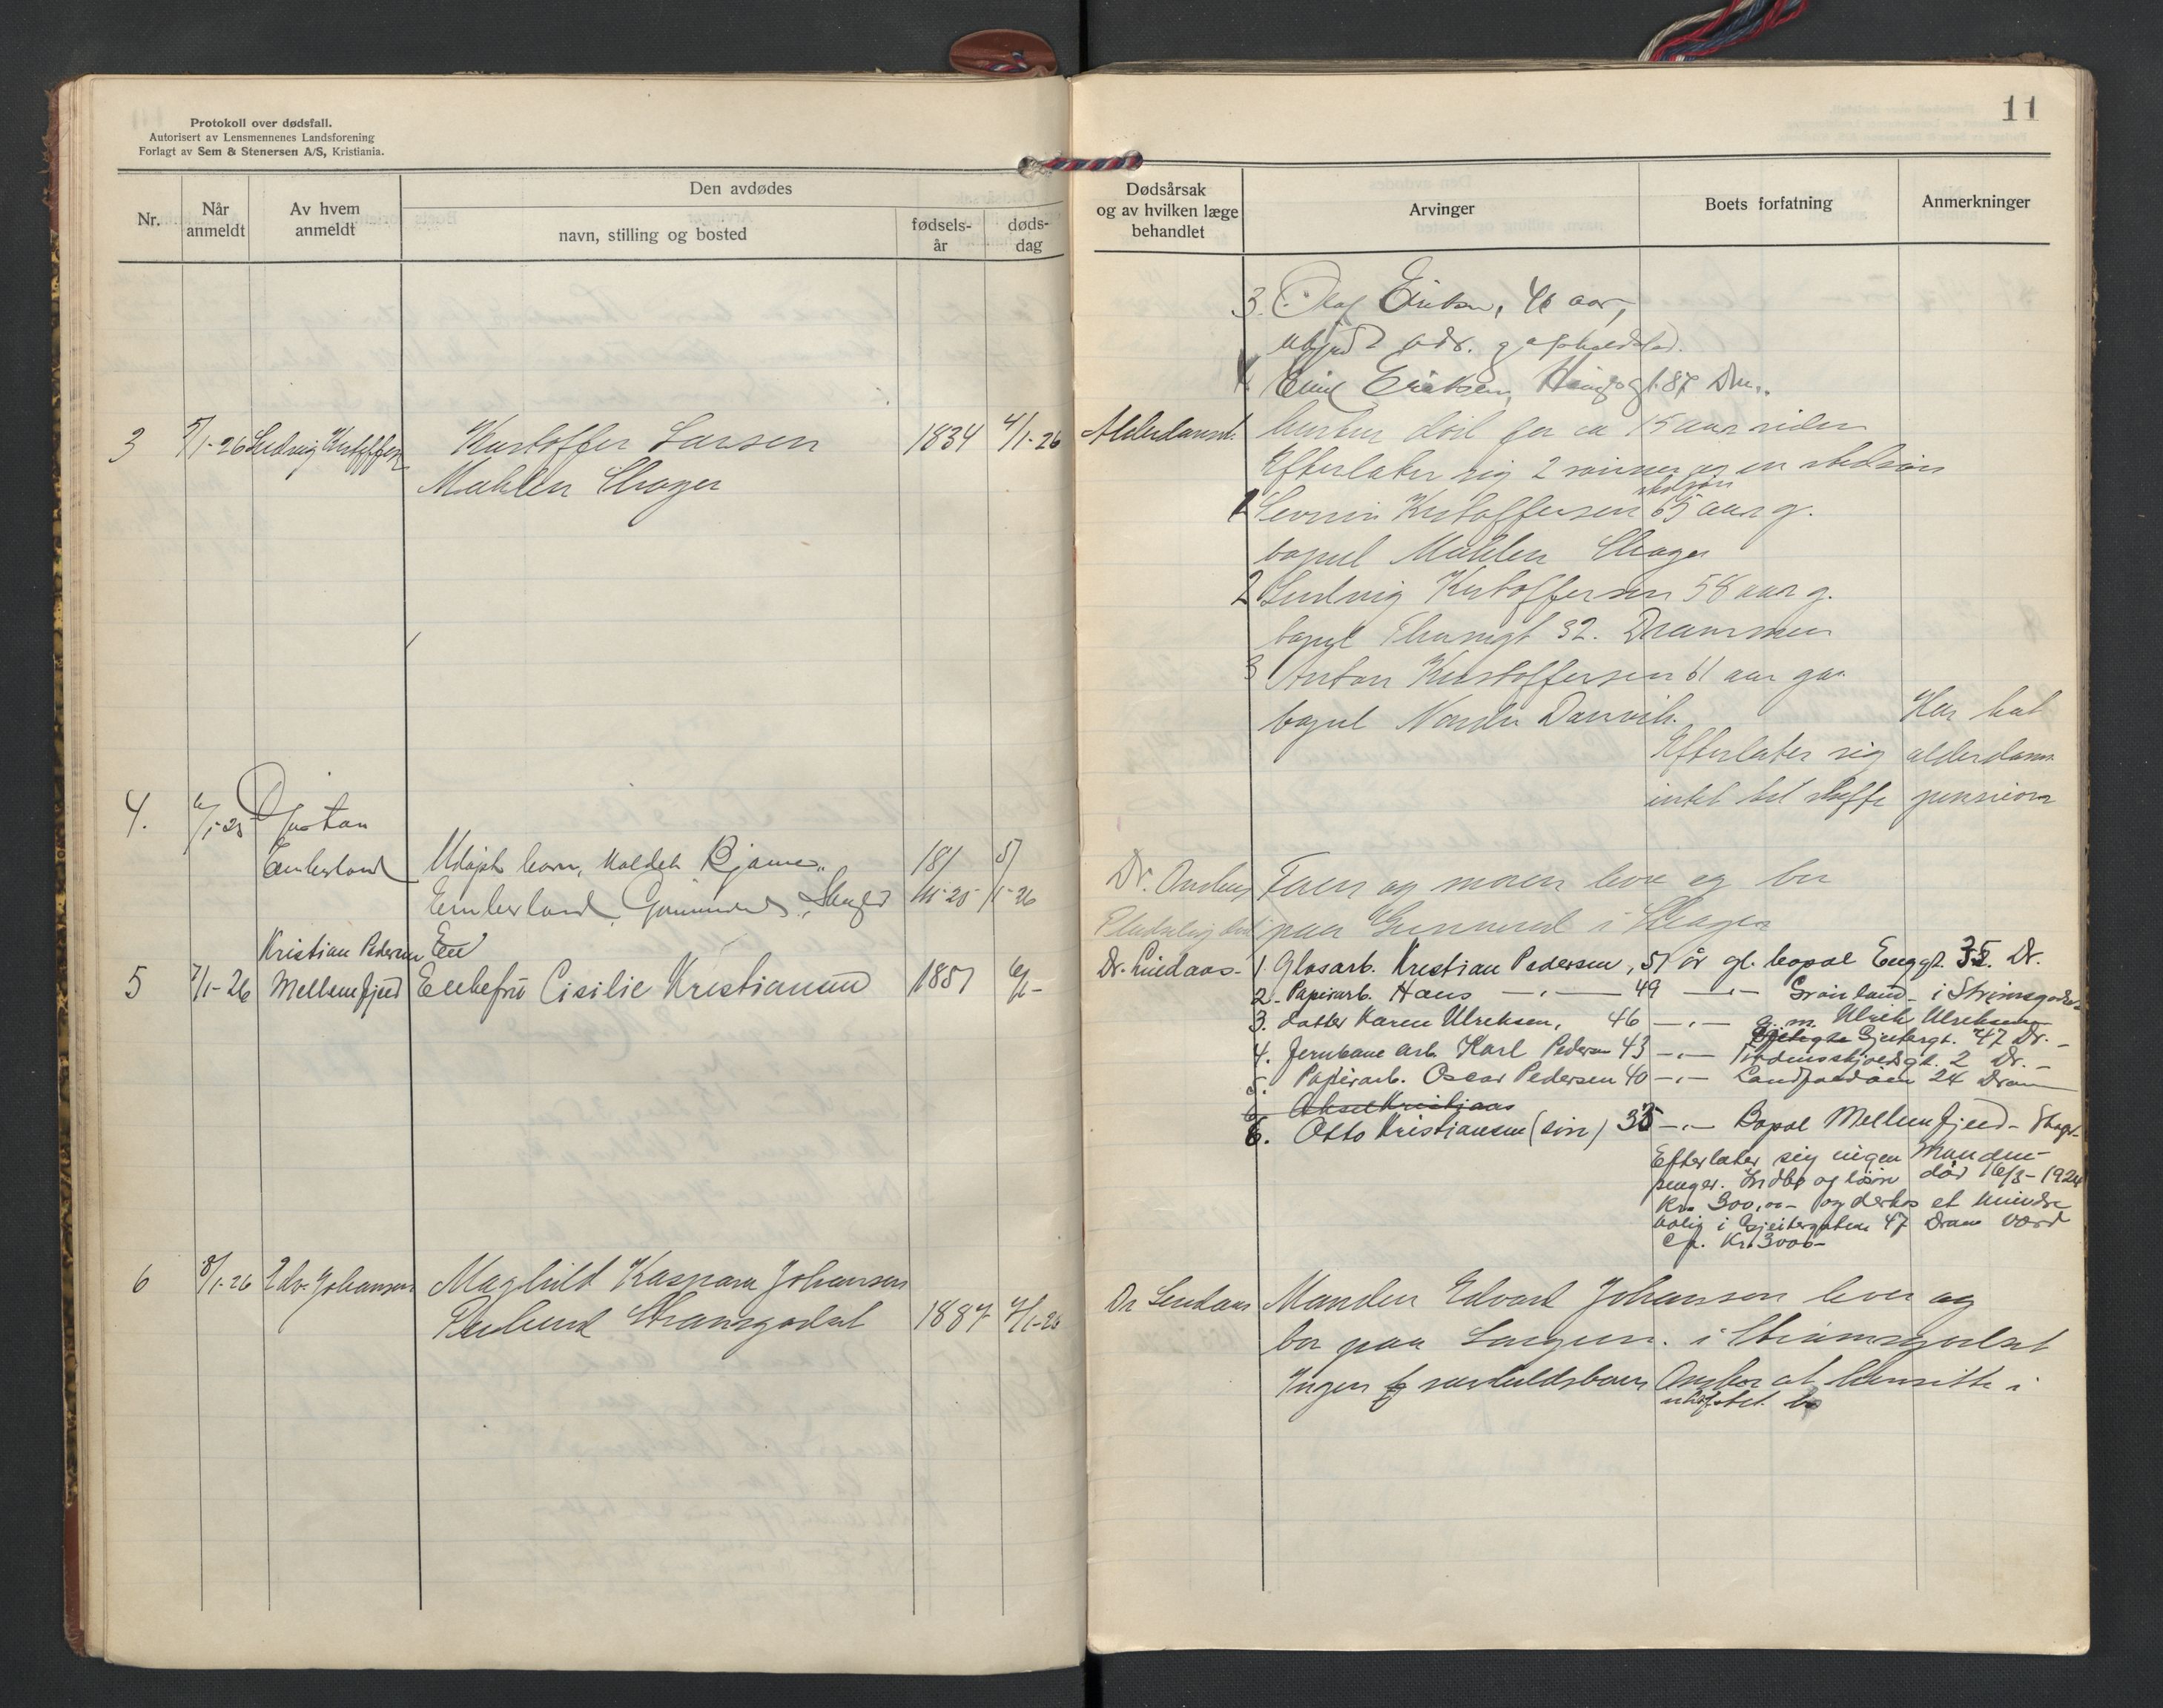 Protokoll over dødsfall.
Autorisert av Lensmennenes Landsforening
Forlagt av Sem & Stenersen A/S, Kristiania.
Nr.
Når anmeldt
Av hvem anmeldt
Den avdødes
navn, stilling og bosted
fødsels-år
døds-dag
11
Dødsårsak og av hvilken læge behandlet
Arvinger
Boets forfatning
Anmerkninger
3. Olaf Eriksen, 46 aar,
Emil Eriksen, 87 Drm.
3 5/1-26 Ludvig Kristoffersen Kristoffer Larsen 1834 4/1-26
Mæhlen Skoger
hustru død for ca 15 aar siden
Efterlater sig 2 sønner og en stedsøn
stedsøn
1 Severin Kristoffersen 65 aar g.
bopæl Mæhlen Skoger
2 Ludvig Kristoffersen 58 aar g.
bopæl 32. Drammen
3 Anton Kristoffersen 61 aar
bopæl Nordre Danvik.
Efterlater sig
intet til skifte
Har hat
alderdoms
pension
4. 6/1-25
Emberland Udøpt barn, kaldet Bjarne 18/ 5/
Emberland Skoger 1-26
Dr. Faren og moren lever og bor
paa i Skoger
Kristian Pedersen
5 7/1-26 Mellemfjerd Enkefru Cisilie Kristiansen 1851 6/1-
Dr. Lindaas- 1. Glasarb. Kristian Pedersen, 51 år gl. bopæl Enggt. 35. Dr.
2. Papirarb. Hans —"— 49 —"— Grønland i Strømsgodset
3. datter Karen Ulriksen, 46 —"— g. m. Ulrik Ulriksen
Gjetergt. 47 Dr.
4. Jernbane arb. Karl Pedersen 43 —"— Tordenskjoldsgt. 2 Dr.
5. Papirarb. Oscar Pedersen 40 —"— Landfaldøen 24 Dram
6 Aksel Kristians
6. Otto Kristiansen (søn) 35 —"— Bopæl Mellemfjerd - Skoger
Efterlater sig ingen
penger. Indbo og løsøre
Manden
død 16/3-1924
Kr. 300,00 og derhos et mindre
bolig i Gjetergaten 47 Dram værd
ca. Kr. 3000-
6 8/1-26 Edv. Johansen Maghild Kaspara Johansen
Strømsgodset 1887 4/1-26
Dr Lindaas Manden Edvard Johansen lever og
bor paa i Strømsgodset
Ingen særkuldsbarn Ønsker at hensitte i
uskiftet bo